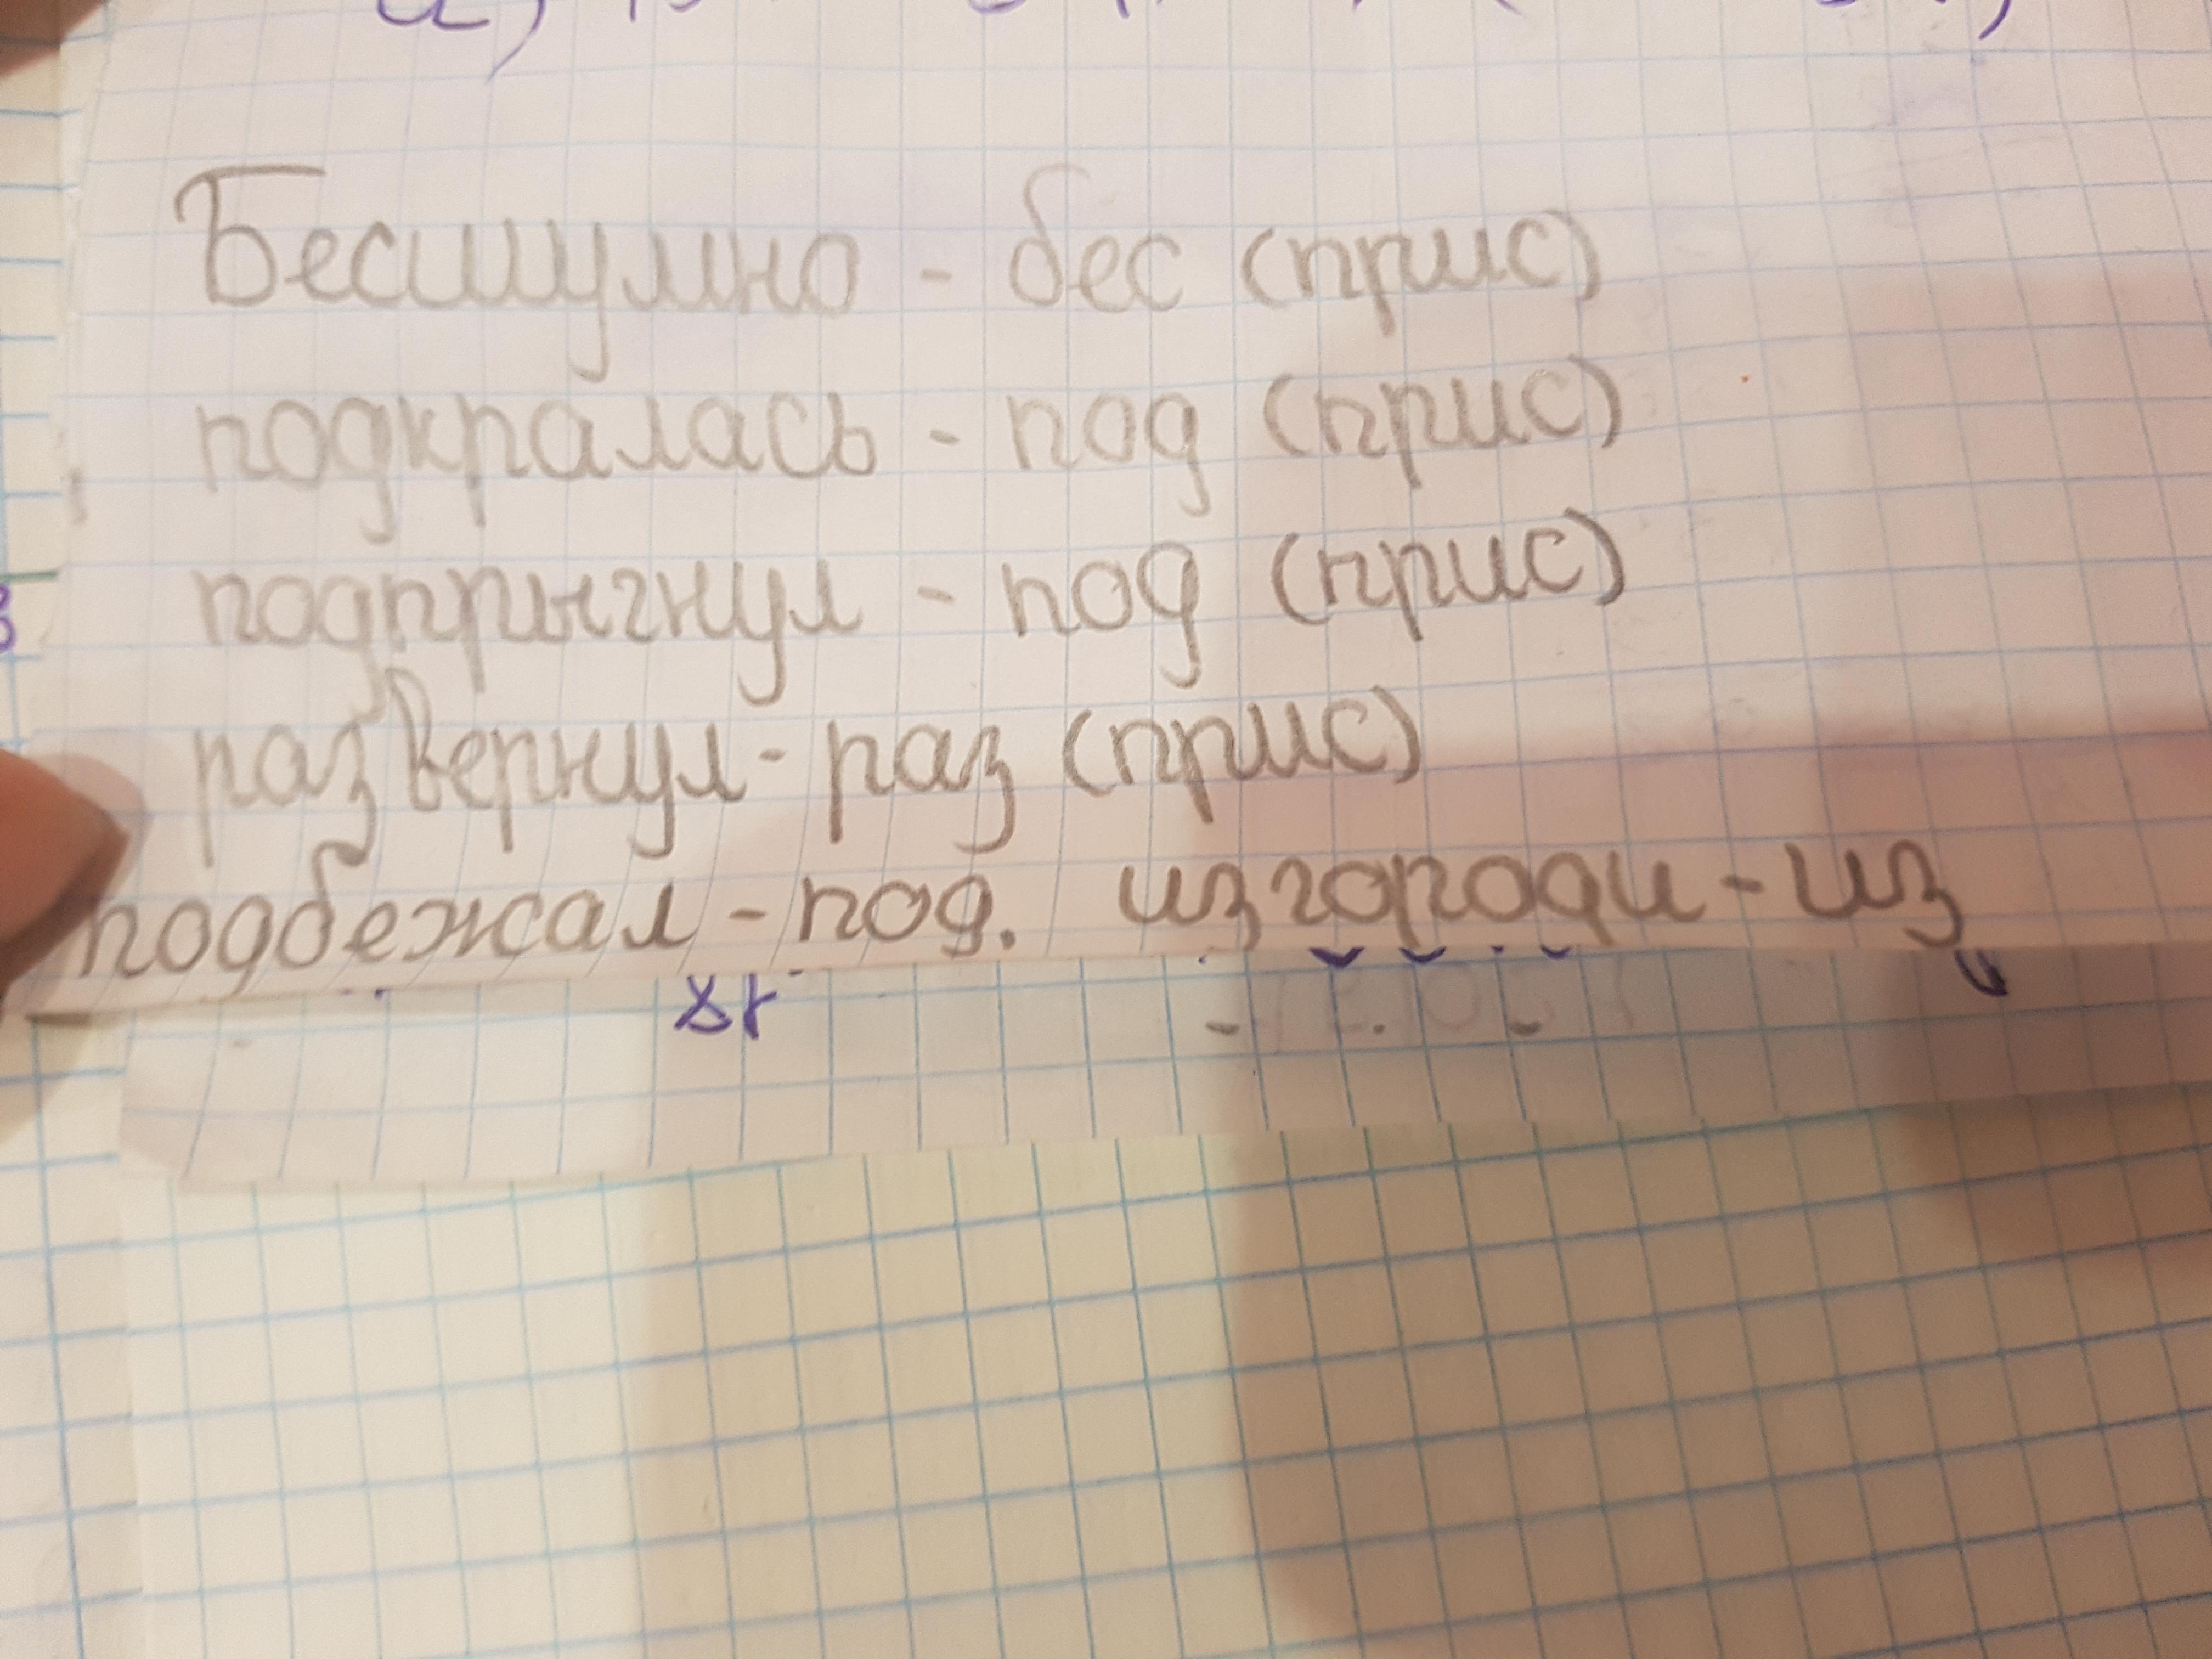 Бесшумно - бес (прис)
подкралась - под (прис)
подпрыгнул - под (прис)
развернул - раз (прис)
подбежал - под. изгороди - из